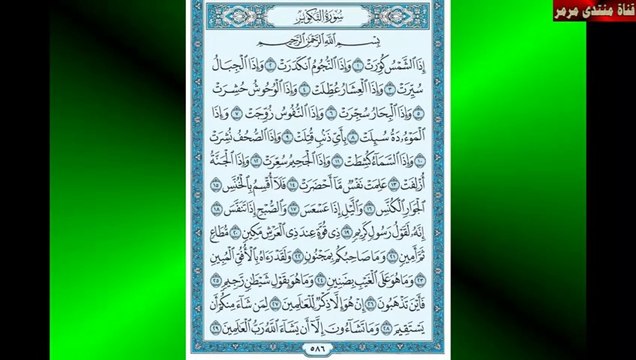 قناة منتدى مرمر
سُورَةُ التَّكْوِيرِ
بِسْمِ اللَّهِ الرَّحْمَٰنِ الرَّحِيمِ
إِذَا الشَّمْسُ كُوِّرَتْ ١ وَإِذَا النُّجُومُ انكَدَرَتْ ٢ وَإِذَا الْجِبَالُ
سُيِّرَتْ ٣ وَإِذَا الْعِشَارُ عُطِّلَتْ ٤ وَإِذَا الْوُحُوشُ حُشِرَتْ
٥ وَإِذَا الْبِحَارُ سُجِّرَتْ ٦ وَإِذَا النُّفُوسُ زُوِّجَتْ ٧ وَإِذَا
الْمَوْءُۥدَةُ سُئِلَتْ ٨ بِأَيِّ ذَنۢبٍ قُتِلَتْ ٩ وَإِذَا الصُّحُفُ نُشِرَتْ
١٠ وَإِذَا السَّمَاءُ كُشِطَتْ ١١ وَإِذَا الْجَحِيمُ سُعِّرَتْ ١٢ وَإِذَا الْجَنَّةُ
أُزْلِفَتْ ١٣ عَلِمَتْ نَفْسٌ مَّا أَحْضَرَتْ ١٤ فَلَا أُقْسِمُ بِالْخُنَّسِ ١٥
الْجَوَارِ الْكُنَّسِ ١٦ وَالَّيْلِ إِذَا عَسْعَسَ ١٧ وَالصُّبْحِ إِذَا تَنَفَّسَ ١٨
إِنَّهُ لَقَوْلُ رَسُولٍ كَرِيمٍ ١٩ ذِي قُوَّةٍ عِندَ ذِي الْعَرْشِ مَكِينٍ ٢٠ مُّطَاعٍ
ثَمَّ أَمِينٍ ٢١ وَمَا صَاحِبُكُم بِمَجْنُونٍ ٢٢ وَلَقَدْ رَءَاهُ بِالْأُفُقِ الْمُبِينِ
٢٣ وَمَا هُوَ عَلَى الْغَيْبِ بِضَنِينٍ ٢٤ وَمَا هُوَ بِقَوْلِ شَيْطَٰنٍ رَّجِيمٍ ٢٥
فَأَيْنَ تَذْهَبُونَ ٢٦ إِنْ هُوَ إِلَّا ذِكْرٌ لِّلْعَالَمِينَ ٢٧ لِمَن شَاءَ مِنكُمْ أَن
يَسْتَقِيمَ ٢٨ وَمَا تَشَاءُونَ إِلَّا أَن يَشَاءَ اللَّهُ رَبُّ الْعَالَمِينَ ٢٩
٥٨٦